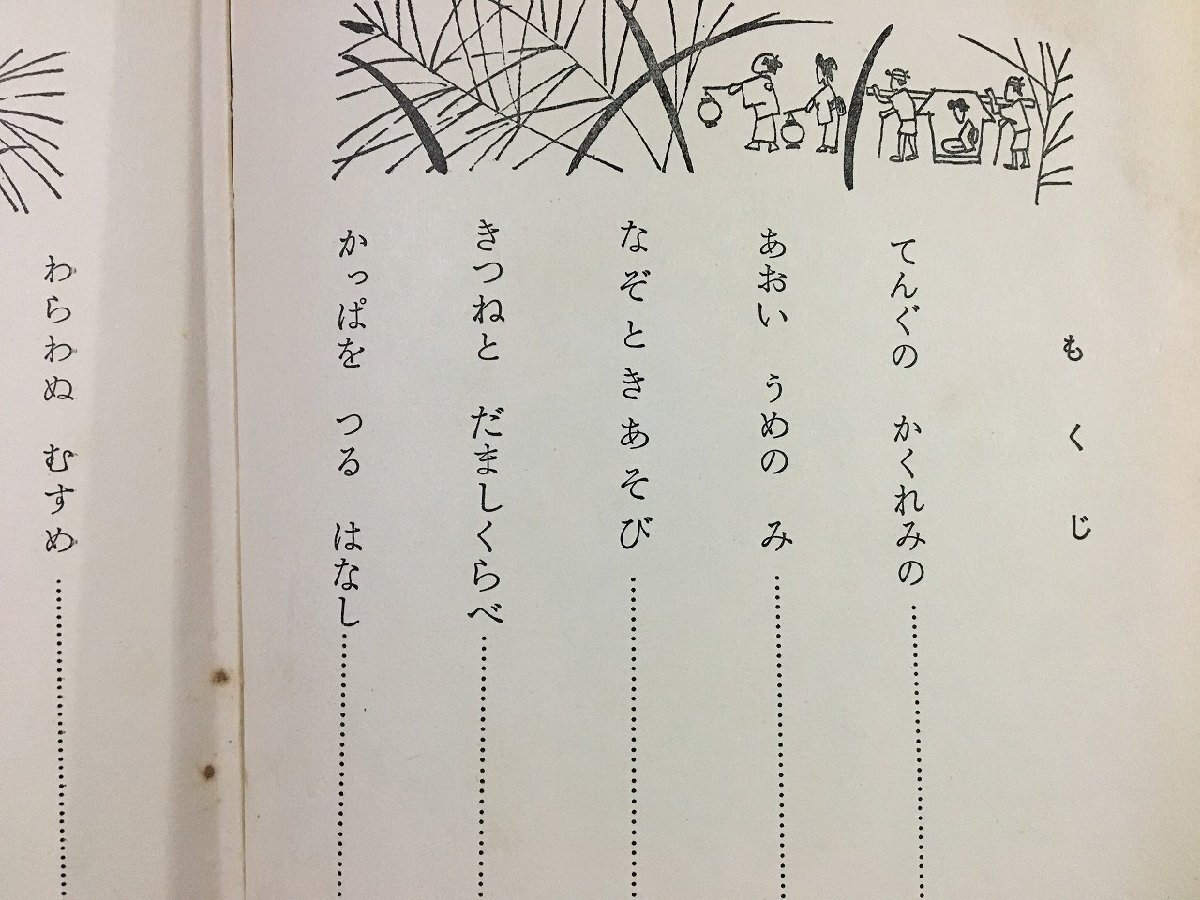 もくじ
てんぐの かくれみの
あおい うめの み
なぞときあそび
きつねと だましくらべ
かっぱを つる はなし
わらわぬ むすめ